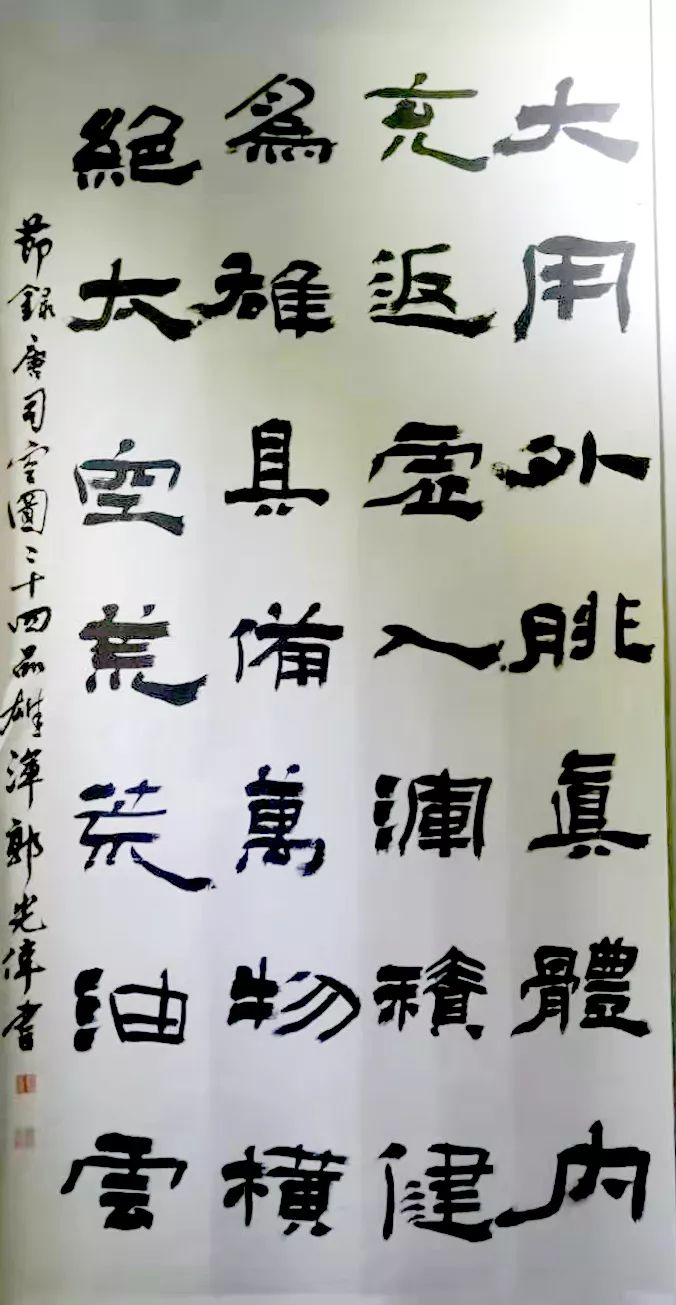 大用外腓眞體內
充返虛入渾積健
爲雄具備萬物橫
絕太空荒荒油雲
節錄唐司空圖二十四品雄渾郭光偉書